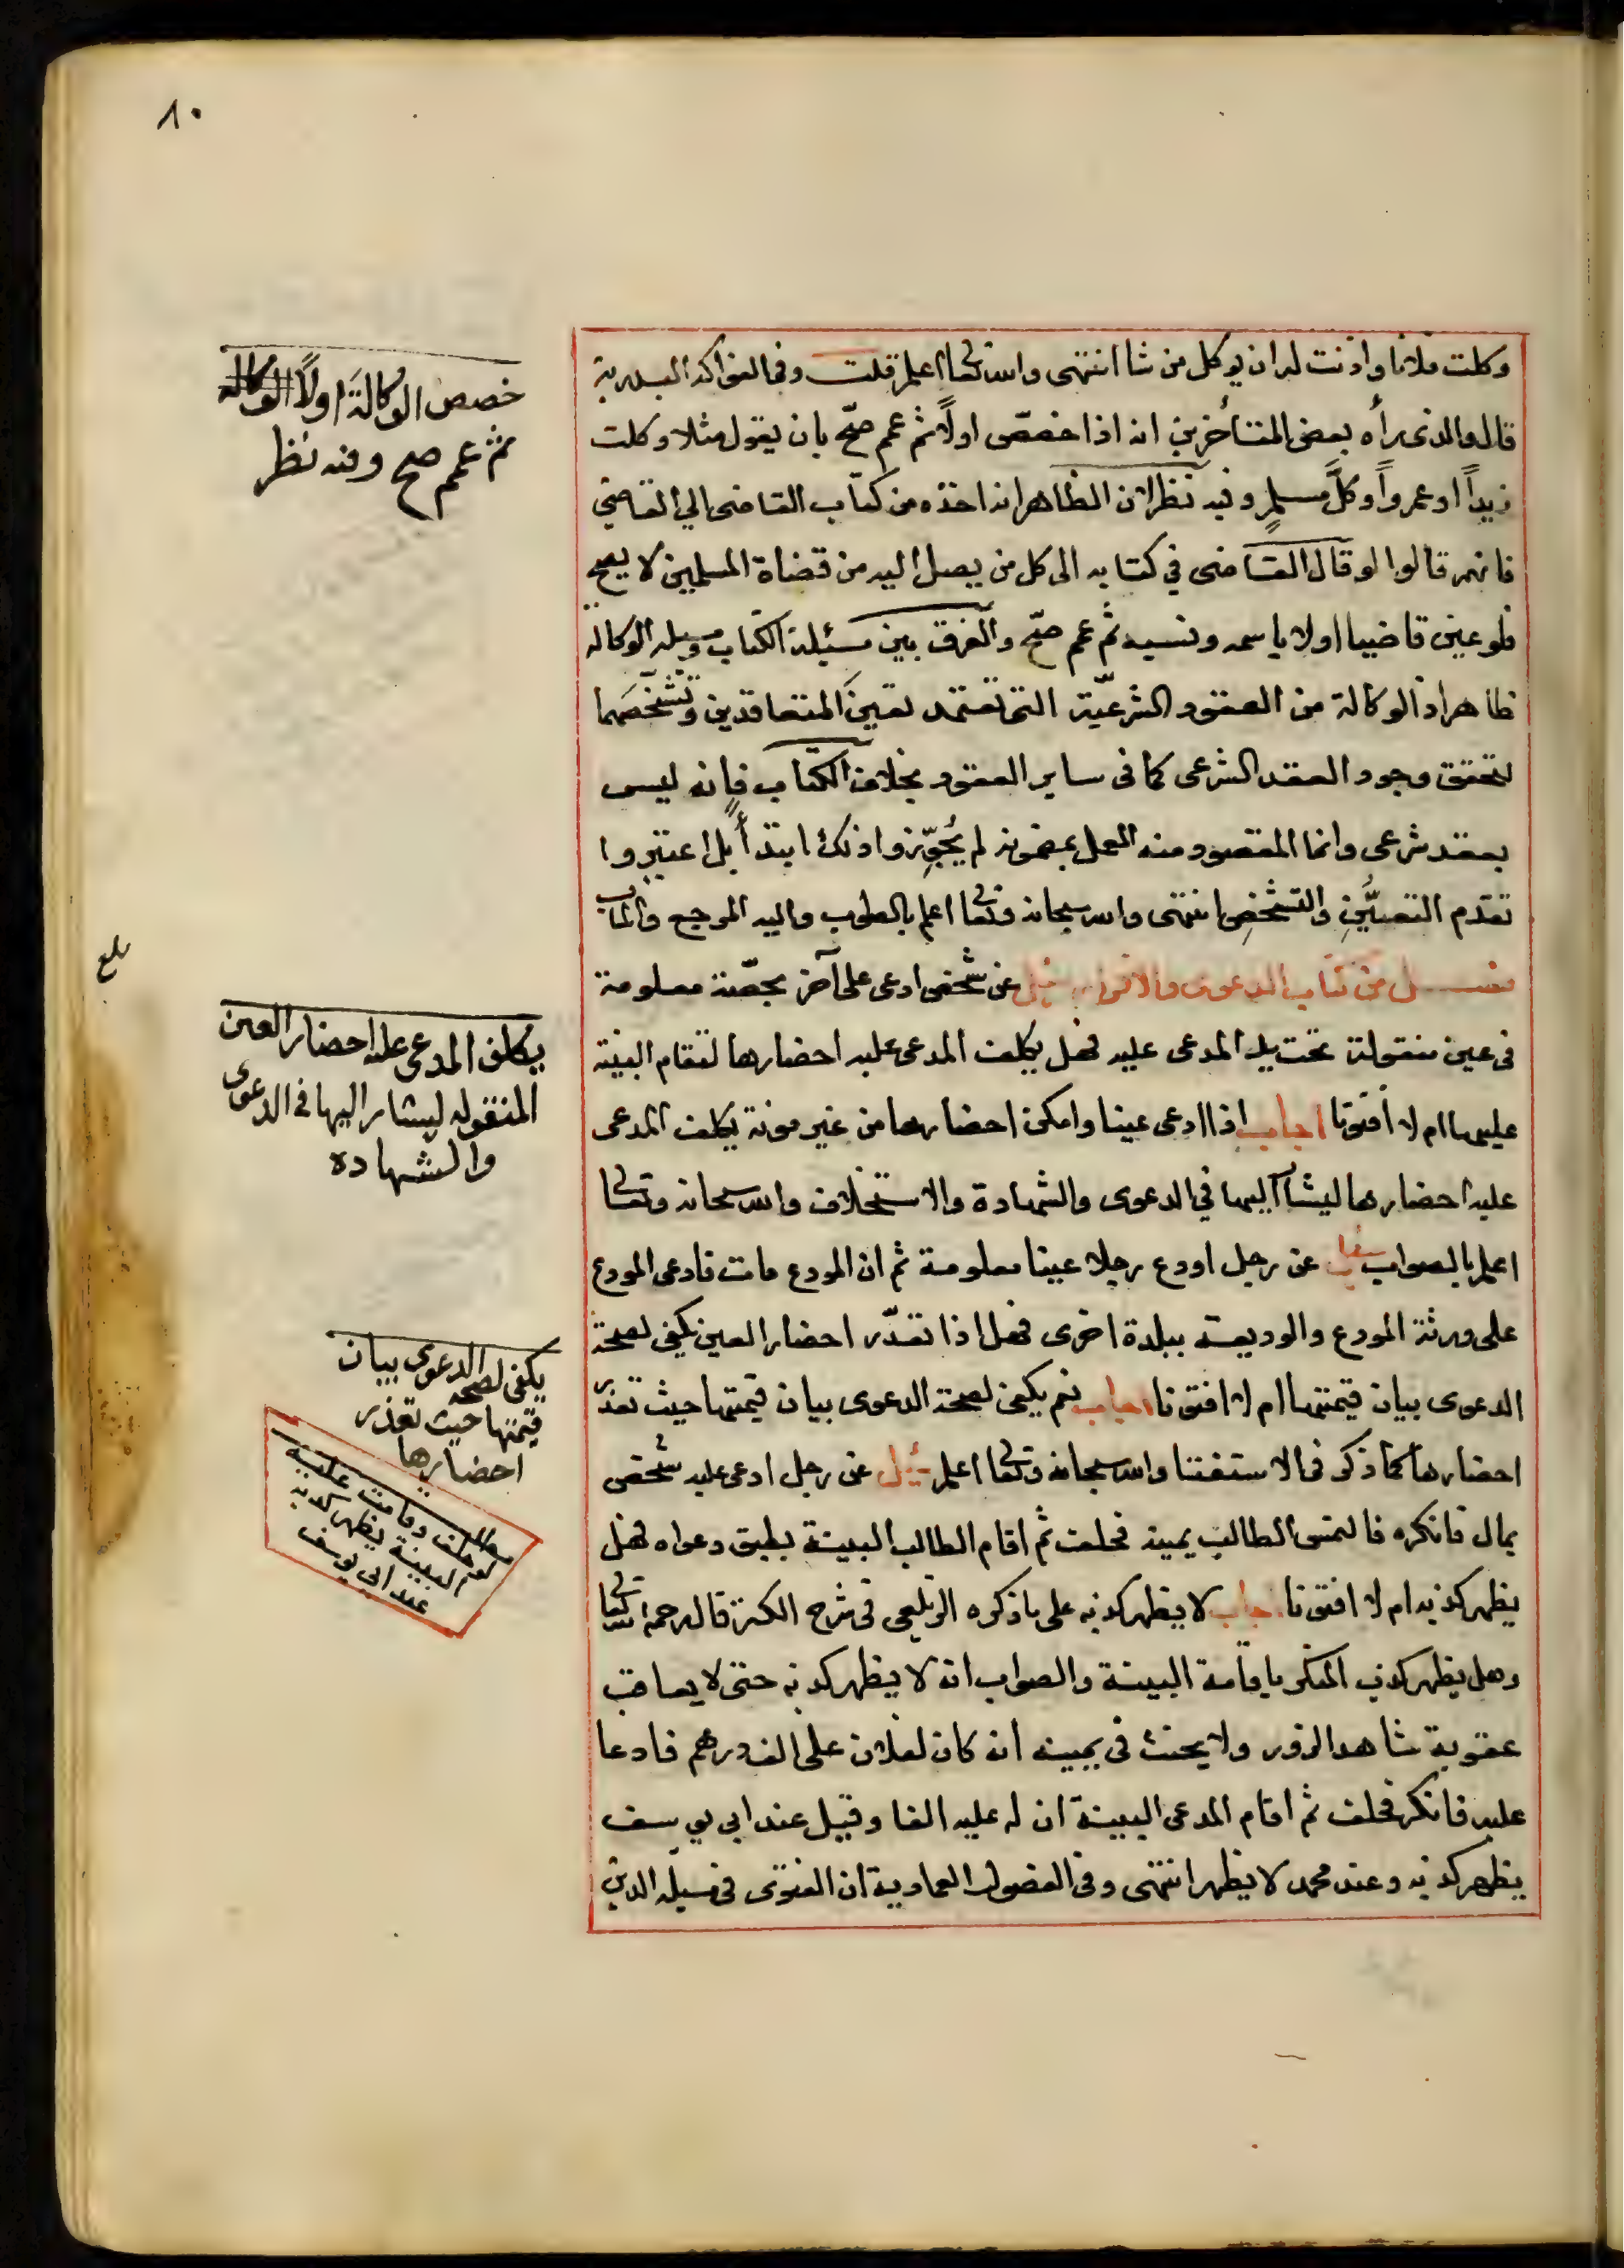 ٨٠
وكلت فلانا واذنت له ان يوكل من شا انتهى والله تعالى اعلم قلت وفي الفواكه البدرية
قال والذي رأه بعض المتأخرين انه اذا خصص اولاً ثم عمم صحّ بان يقول مثلا وكلت
زيداً او عمرواً وكلَّ مسلمٍ وفيه نظر لان الظاهر انه اخذه من كتاب القاضي الي القاضي
فانهم قالوا لو قال القاضي في كتابه الى كل من يصل اليه من قضاة المسلمين لا يصح
فلو عين قاضيا اولا باسمه ونسبه ثم عمم صحّ والفرق بين مسئلة الكتاب ومسيلة الوكالة
ظاهر اذ الوكالة من العقود الشرعيّة التي تعتمد تعين المتعاقدين وتشخصهما
لتحقق وجود العقد الشرعي كما في ساير العقود بخلاف الكتاب فانه ليس
بعقد شرعى وانما المقصود منه العمل بمضمونه لم يُجوِّزوا ذلك ابتدأً بل اعتبروا
تقدم التعيُّنِ والتشخصِ انتهى والله سبحانه وتعالى اعلم بالصواب واليه المرجع والمآب
فصل من كتاب الدعوى والاقرار سئل عن شخص ادعى على آخر بحصّة معلومة
في عين منقولة تحت يد المدعى عليه فهل يكلف المدعى عليه احضارها لتقام البينة
عليها ام لا افتونا اجاب اذا ادعى عينا وامكن احضارها من غير مونة يكلف المدعى
عليه احضارها ليشار اليها في الدعوى والشهادة والاستحلاف والله سبحانه وتعالى
اعلم بالصواب سئل عن رجل اودع رجلا عينا معلومة ثم ان المودع مات فادعى المودع
على ورثة المودع والوديعة ببلدة اخرى فهل اذا تعذّر احضار العين يكفي لصحة
الدعوى بيان قيمتها ام لا افتونا اجاب نعم يكفي لصحة الدعوى بيان قيمتها حيث تعذر
احضارها كما ذكر في الاستفتا والله سبحانه وتعالى اعلم سئل عن رجل ادعى عليه شخص
بمال فانكره فالتمس الطالب يمينه فحلف ثم اقام الطالب البينة بطبق دعواه فهل
يظهر كذبه ام لا افتونا اجاب لا يظهر كذبه على ما ذكره الزيلعي في شرح الكنز قال رحمه الله تعالى
وهل يظهر كذب المنكر باقامة البينة والصواب انه لا يظهر كذبه حتى لا يعاقب
عقوبة شاهد الزور ولا يحنث في يمينه ان كان لفلان على الف درهم فادعا
عليه فانكر فحلف ثم اقام المدعى البينة ان له عليه الفا وقيل عند ابي يوسف
يظهر كذبه وعند محمد لا يظهر انتهى وفي الفصول العمادية ان الفتوى في مسيلة الدين
خصص الوكالَة اولاً الوكالة
ثم عمم صح وفيه نظر
بلغ
يكلف المدعى عليه احضار العين
المنقوله ليشار اليها في الدعوى
والشهاده
يكفى لصحة الدعوى بيان
قيمتها حيث تعذر
احضارها
مطلب
لو حلف وقامت عليه
البينة يظهر كذبه
عند ابي يوسف